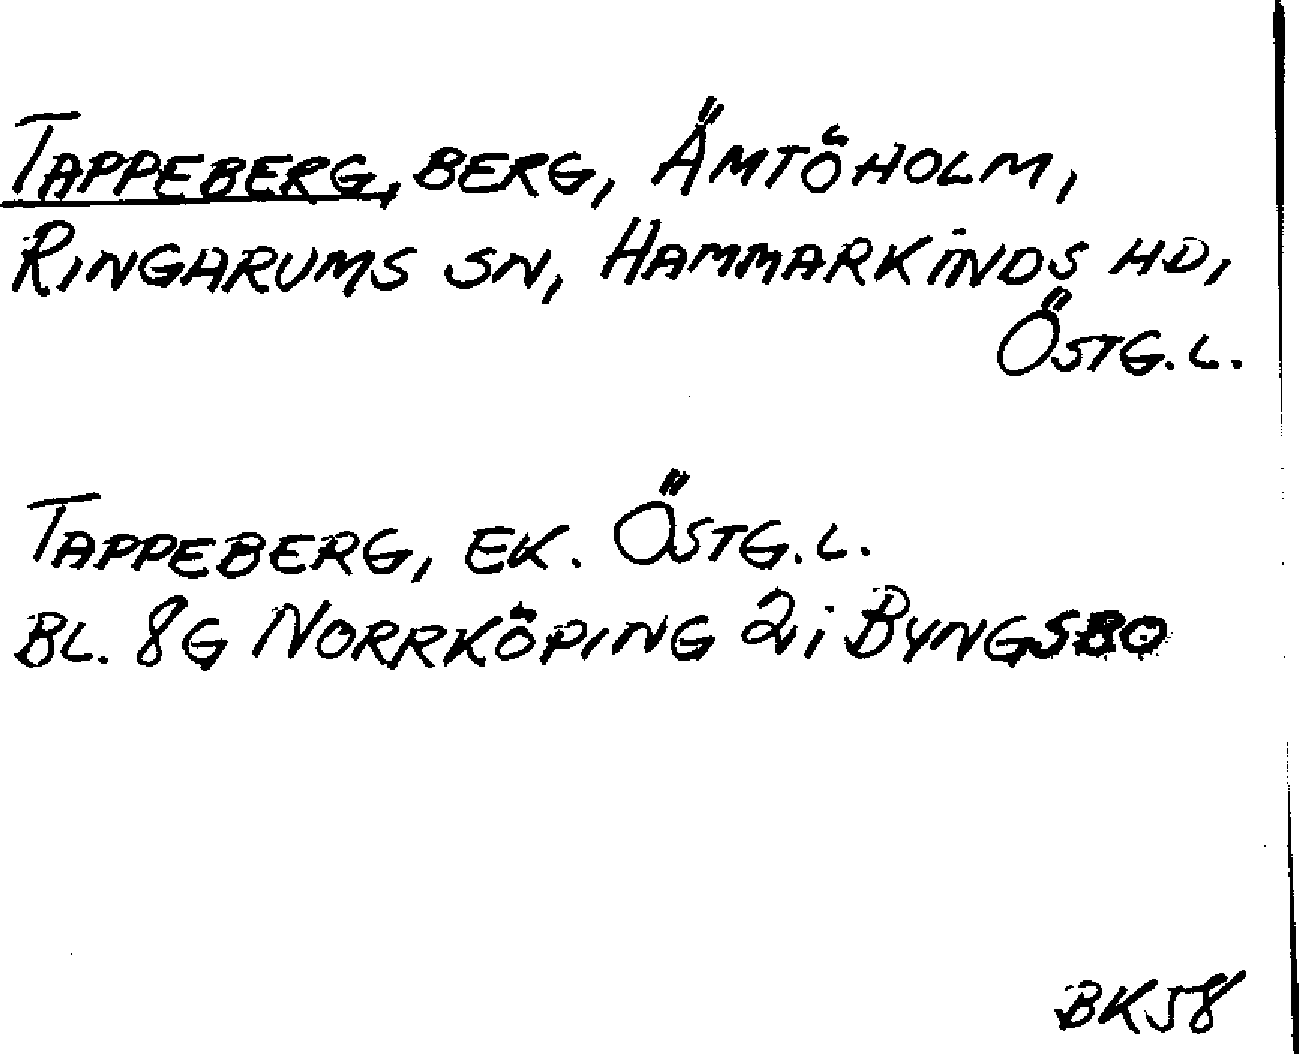 TAPPEBERG, BERG, ÄMTÖHOLM,
RINGARUMS SN, HAMMARKINDS HD,
ÖSTG.L.
TAPPEBERG, EK. ÖSTG.L.
BL. 8G NORRKÖPING 2i BYNGSBO
BK58